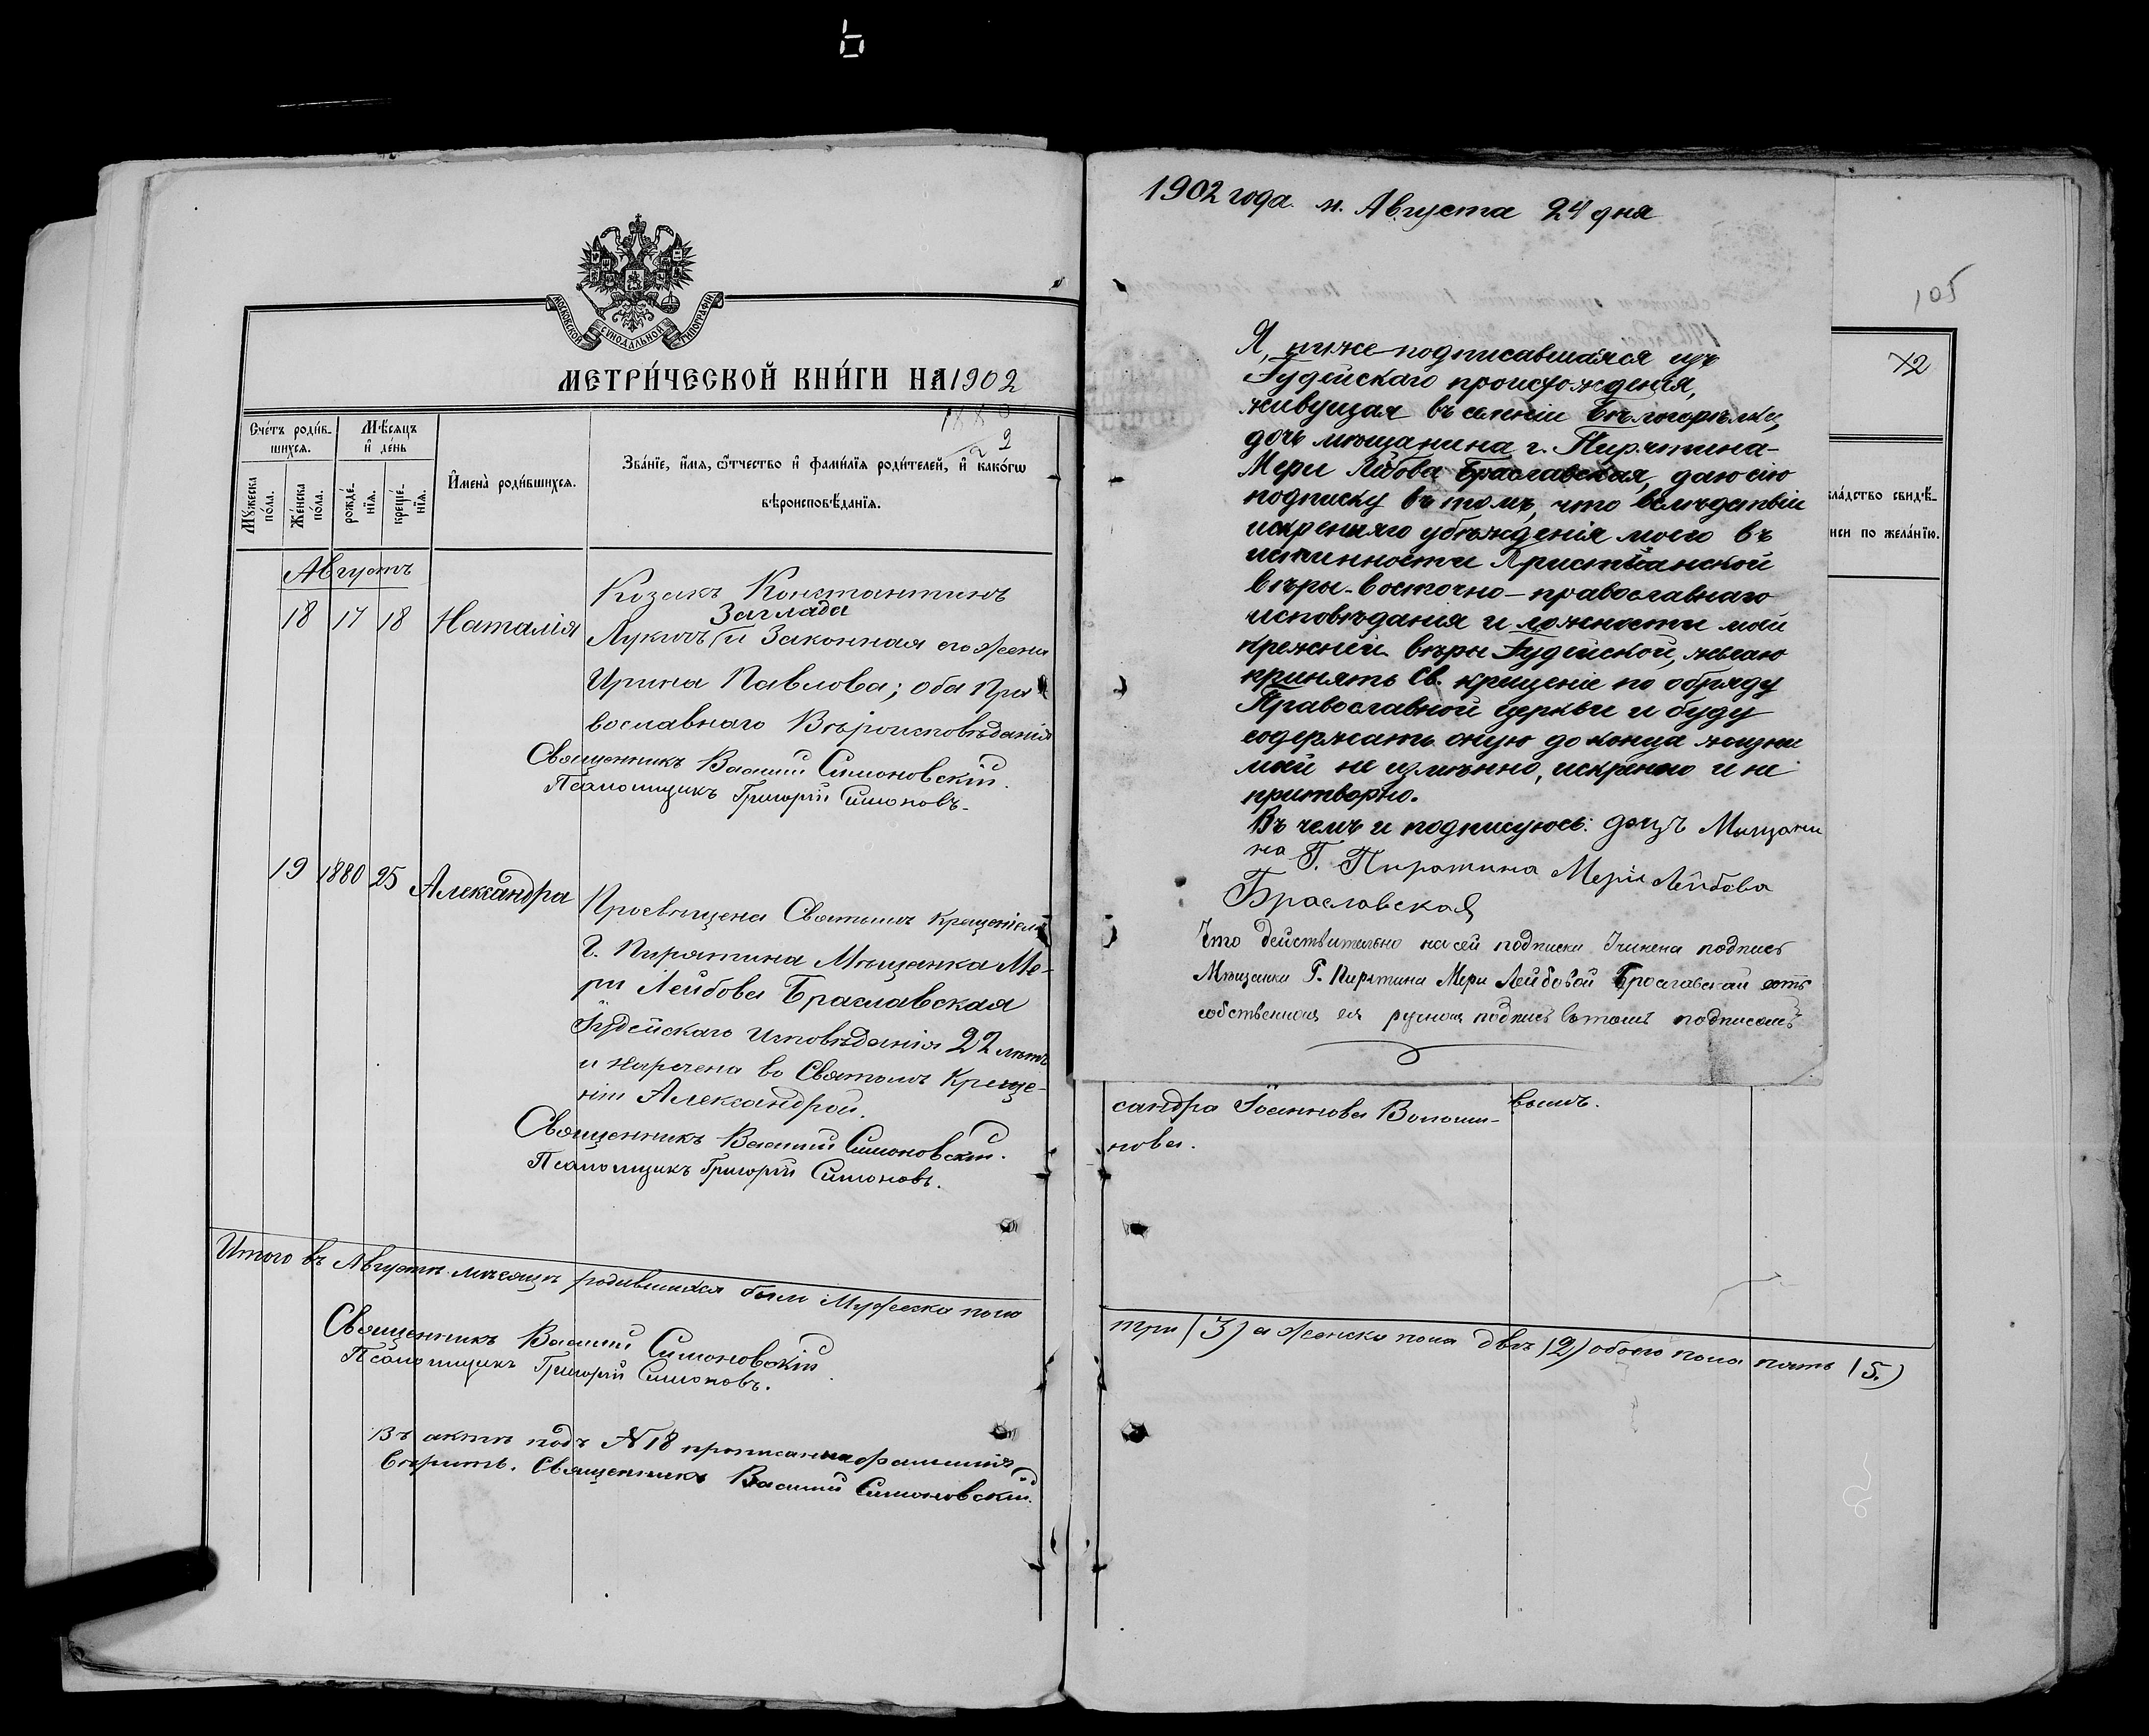 МОСКОВСКОЙ СѴНОДАЛЬНОЙ ТИПОГРАФІИ
МЕТРИ́ЧЕСКОЙ КНИ́ГИ НА 1902
Сче́тъ роди́в-
шихсѧ.
Мꙋ́жеска
по́ла.
Же́нска
по́ла.
Мѣ́сѧцъ
и҆ де́нь
рожде́-
нїѧ.
креще́-
нїѧ.
И҆мена̀ роди́вшихсѧ.
1880
2
Зва́нїе, и҆́мѧ, ѻ҆́тчество и҆ фами́лїѧ роди́телей, и҆ како́гѡ
вѣроисповѣ́данїѧ.
Августъ
18 17 18 Наталія
Козакъ Константинъ
Заглада
Лукичъ и Законная его жена
Ирина Павлова; оба Пра
вославнаго Вѣроисповѣданія
Священникъ Василій Симоновскій.
Псаломщикъ Григорій Симоновъ.
19 1880 25 Александра
Просвящена Святымъ Крещеніемъ
Г. Пирятина Мѣщанка Ме-
ри Лейбова Браславская
Іудейскаго Исповѣданія 22 лѣтъ
и наречена во Святомъ Креще-
ніи Александрой.
Священникъ Василій Симоновскій.
Псаломщикъ Григорій Симоновъ.
Итого въ Августѣ мѣсяцѣ родившихся было Мужеска пола
Священникъ Василій Симоновскій
Псаломщикъ Григорій Симоновъ.
Въ актѣ подъ N 18 прописанна фамилія
вѣрить. Священникъ Василій Симоновскій.
1902 года. м. Августа 24 дня
Я, ниже подписавшаяся изъ
Іудейскаго происхожденія,
живущая въ селеніи Бѣлогорѣлке,
дочь мѣщанина г. Пирятина-
Мери Лейбова Браславская, даю сію
подписку въ томъ, что вслѣдствіи
искренняго убѣжденія моего въ
истинности Христіанской
вѣры-восточно-православнаго
исповѣданія и ложности моей
прежней вѣры Іудейской, желаю
принять Св. крещеніе по обряду
Православной церкви и буду
содержать оную до конца жизни
моей не измѣнно, искренно и не
притворно.
Въ чемъ и подписуюсь: дочь Мещани
на Г. Пирятина Мери Лейбова
Браславская
Что действительно на сей подписки учинена подпись
Мѣщанки Г. Пирятина Мери Лейбовой Браславской есть
собственноя ея ручноя подпись въ томъ подписомъ
105
72
лѧ́дство свидѣ́-
иси по жела́нїю.
сандра Іоаннова Волоши-
нова.
вымъ.
три (3) а женска пола двѣ (2) обоего пола пять (5.)